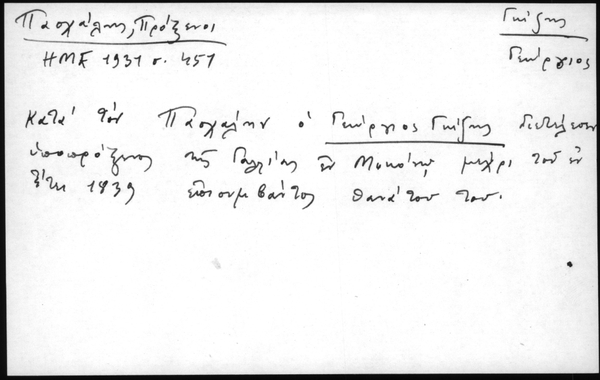 Πασχάλης, Πρόξενοι
Γκίζης
ΗΜΕ 1931 σ. 451
Γεώργιος
κατά τόν Πασχάλην ὁ Γεώργιος Γκίζης διετέλεσεν
ὑποπρόξενος τῆς Γαλλίας ἐν Μυκόνῳ μέχρι τοῦ ἐν
ἔτει 1839 ἐπισυμβάντος θανάτου του.